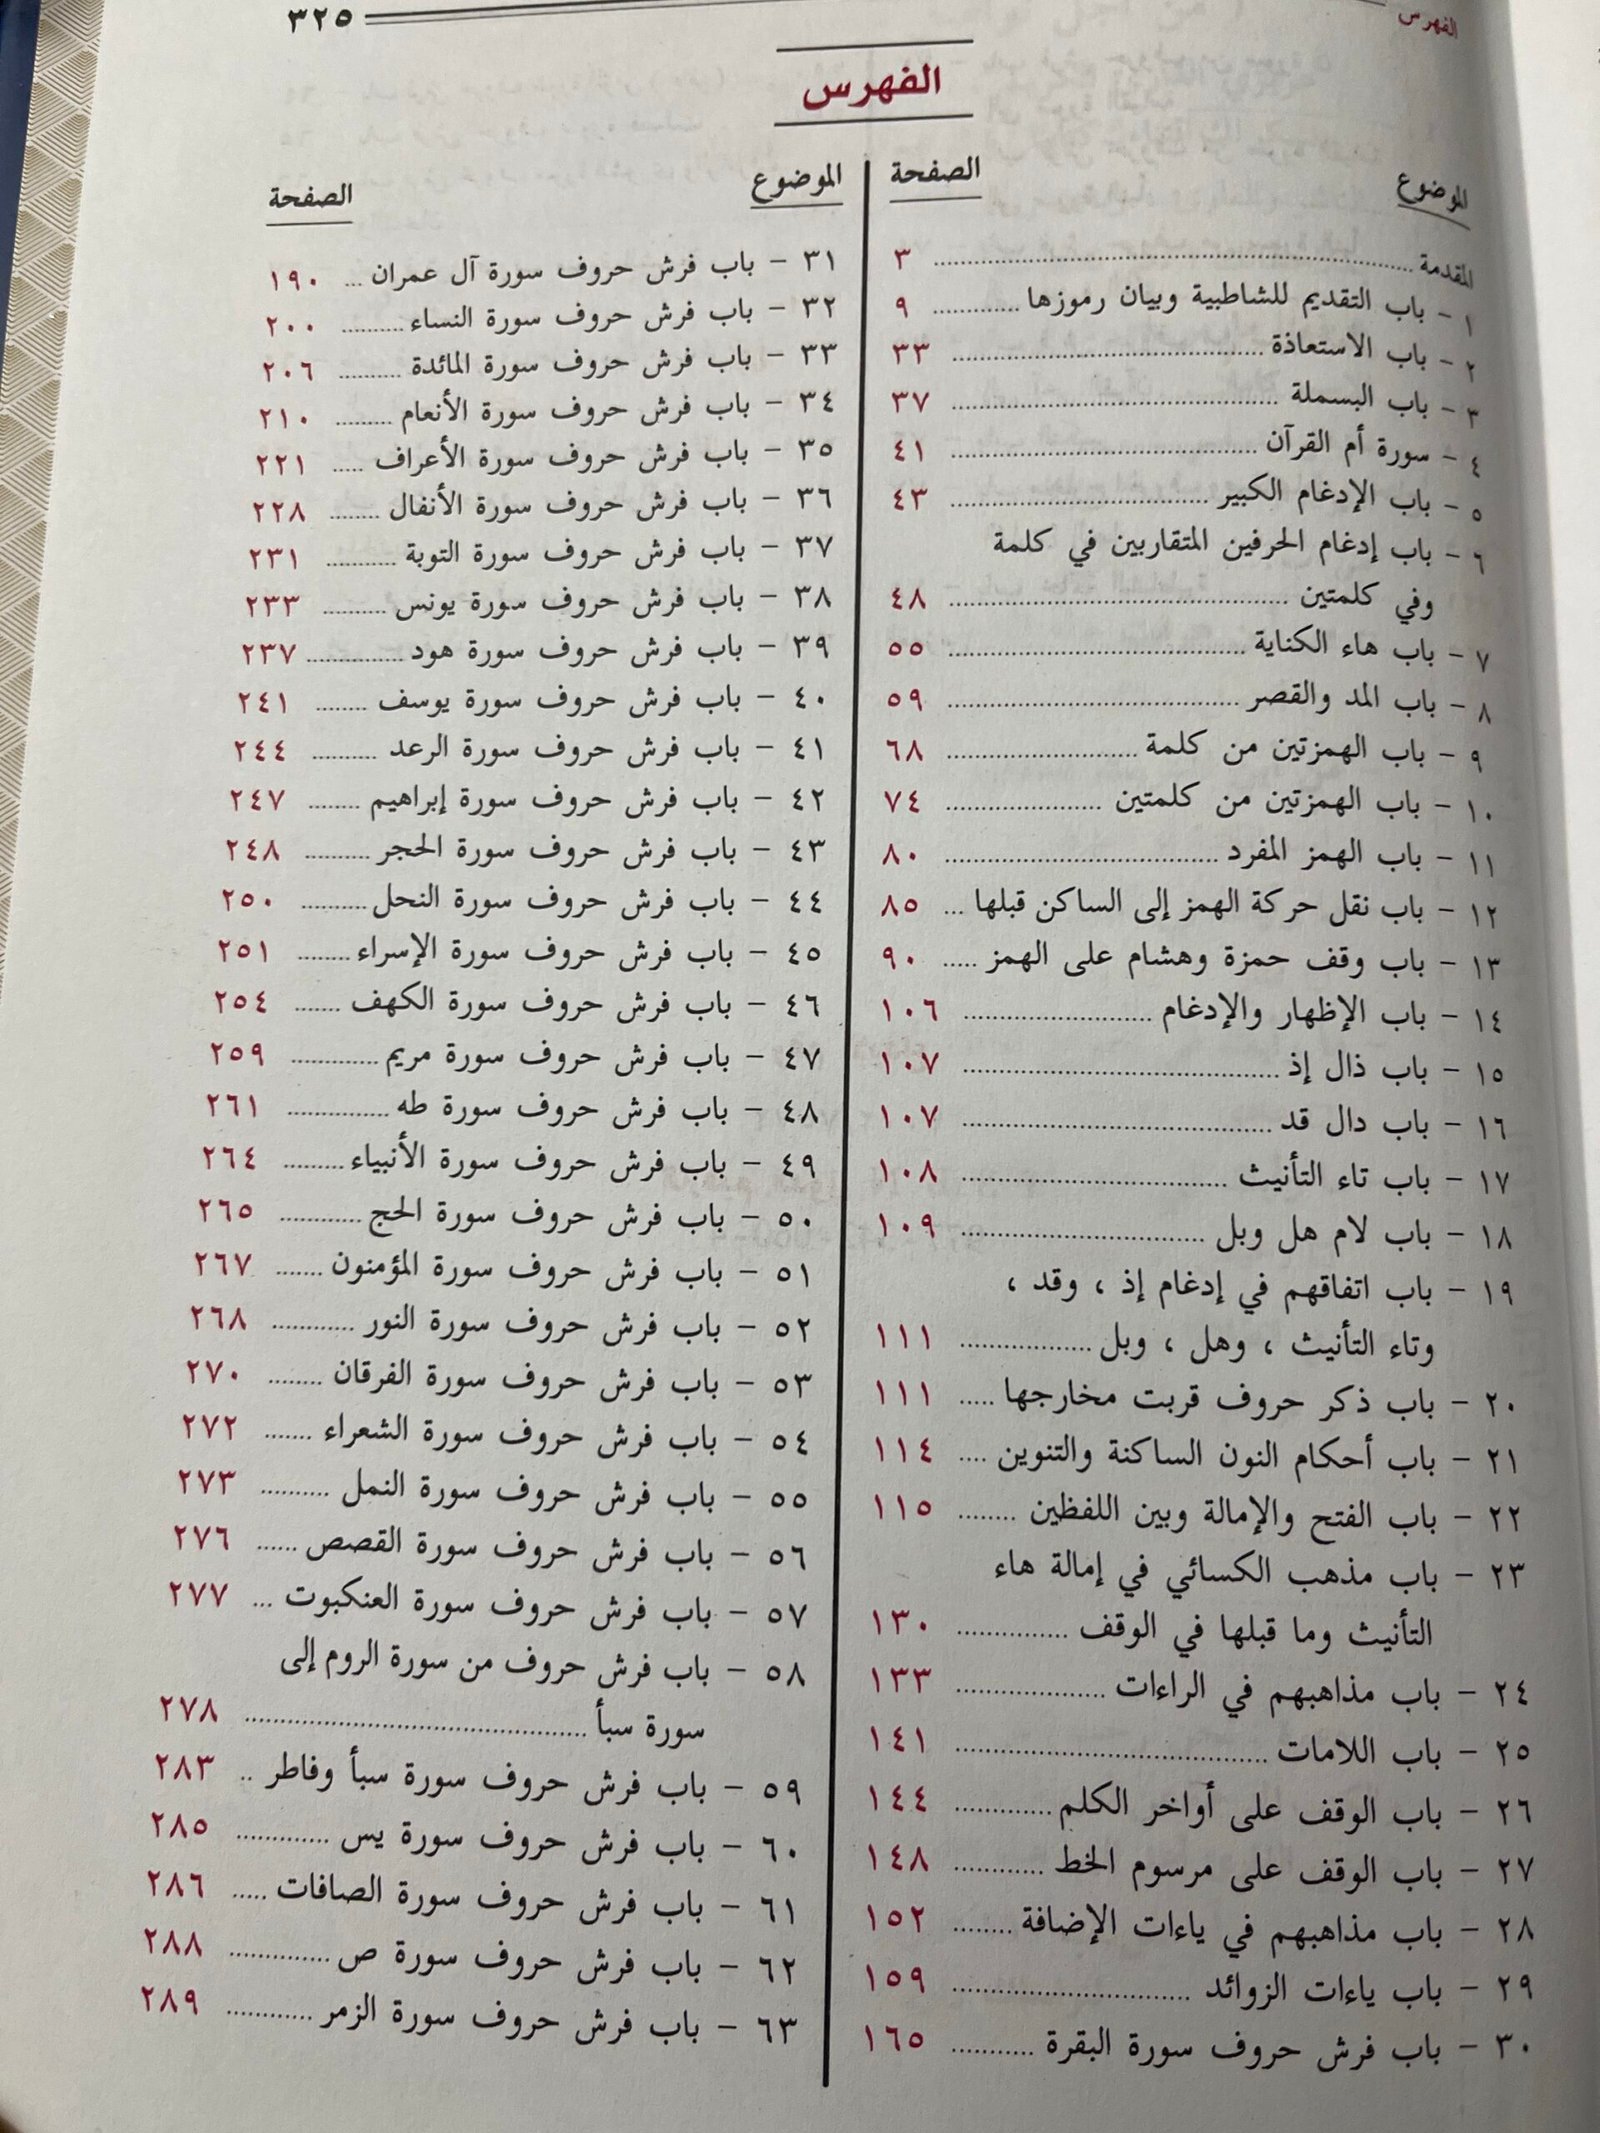 الفهرس
٣٢٥
الفهرس
الموضوع
الصفحة
المقدمة ................ ٣
١ - باب التقديم للشاطبية وبيان رموزها ............ ٩
٢ - باب الاستعاذة ................ ٣٣
٣ - باب البسملة ................ ٣٧
٤ - سورة أم القرآن ................ ٤١
٥ - باب الإدغام الكبير ................ ٤٣
٦ - باب إدغام الحرفين المتقاربين في كلمة
وفي كلمتين ................ ٤٨
٧ - باب هاء الكناية ................ ٥٥
٨ - باب المد والقصر ................ ٥٩
٩ - باب الهمزتين من كلمة ................ ٦٨
١٠ - باب الهمزتين من كلمتين ................ ٧٤
١١ - باب الهمز المفرد ................ ٨٠
١٢ - باب نقل حركة الهمز إلى الساكن قبلها ... ٨٥
١٣ - باب وقف حمزة وهشام على الهمز ..... ٩٠
١٤ - باب الإظهار والإدغام ................ ١٠٦
١٥ - باب ذال إذ ................ ١٠٧
١٦ - باب دال قد ................ ١٠٧
١٧ - باب تاء التأنيث ................ ١٠٨
١٨ - باب لام هل وبل ................ ١٠٩
١٩ - باب اتفاقهم في إدغام إذ ، وقد ،
وتاء التأنيث ، وهل ، وبل ................ ١١١
٢٠ - باب ذكر حروف قربت مخارجها ..... ١١١
٢١ - باب أحكام النون الساكنة والتنوين .... ١١٤
٢٢ - باب الفتح والإمالة وبين اللفظين ........ ١١٥
٢٣ - باب مذهب الكسائي في إمالة هاء
التأنيث وما قبلها في الوقف ............... ١٣٠
٢٤ - باب مذاهبهم في الراءات ................ ١٣٣
٢٥ - باب اللامات ................ ١٤١
٢٦ - باب الوقف على أواخر الكلم ............. ١٤٤
٢٧ - باب الوقف على مرسوم الخط ............ ١٤٨
٢٨ - باب مذاهبهم في ياءات الإضافة ........ ١٥٢
٢٩ - باب ياءات الزوائد ................ ١٥٩
٣٠ - باب فرش حروف سورة البقرة ........... ١٦٥
الموضوع
الصفحة
٣١ - باب فرش حروف سورة آل عمران ... ١٩٠
٣٢ - باب فرش حروف سورة النساء ......... ٢٠٠
٣٣ - باب فرش حروف سورة المائدة .......... ٢٠٦
٣٤ - باب فرش حروف سورة الأنعام ......... ٢١٠
٣٥ - باب فرش حروف سورة الأعراف ..... ٢٢١
٣٦ - باب فرش حروف سورة الأنفال ........ ٢٢٨
٣٧ - باب فرش حروف سورة التوبة ............ ٢٣١
٣٨ - باب فرش حروف سورة يونس .......... ٢٣٣
٣٩ - باب فرش حروف سورة هود ................ ٢٣٧
٤٠ - باب فرش حروف سورة يوسف ........ ٢٤١
٤١ - باب فرش حروف سورة الرعد .......... ٢٤٤
٤٢ - باب فرش حروف سورة إبراهيم ........ ٢٤٧
٤٣ - باب فرش حروف سورة الحجر .......... ٢٤٨
٤٤ - باب فرش حروف سورة النحل .......... ٢٥٠
٤٥ - باب فرش حروف سورة الإسراء ........ ٢٥١
٤٦ - باب فرش حروف سورة الكهف ....... ٢٥٤
٤٧ - باب فرش حروف سورة مريم ............. ٢٥٩
٤٨ - باب فرش حروف سورة طه ................ ٢٦١
٤٩ - باب فرش حروف سورة الأنبياء ......... ٢٦٤
٥٠ - باب فرش حروف سورة الحج ............ ٢٦٥
٥١ - باب فرش حروف سورة المؤمنون ....... ٢٦٧
٥٢ - باب فرش حروف سورة النور ............ ٢٦٨
٥٣ - باب فرش حروف سورة الفرقان ........ ٢٧٠
٥٤ - باب فرش حروف سورة الشعراء ....... ٢٧٢
٥٥ - باب فرش حروف سورة النمل .......... ٢٧٣
٥٦ - باب فرش حروف سورة القصص ...... ٢٧٦
٥٧ - باب فرش حروف سورة العنكبوت ... ٢٧٧
٥٨ - باب فرش حروف من سورة الروم إلى
سورة سبأ ................ ٢٧٨
٥٩ - باب فرش حروف سورة سبأ وفاطر .. ٢٨٣
٦٠ - باب فرش حروف سورة يس ............. ٢٨٥
٦١ - باب فرش حروف سورة الصافات ..... ٢٨٦
٦٢ - باب فرش حروف سورة ص .............. ٢٨٨
٦٣ - باب فرش حروف سورة الزمر ............ ٢٨٩